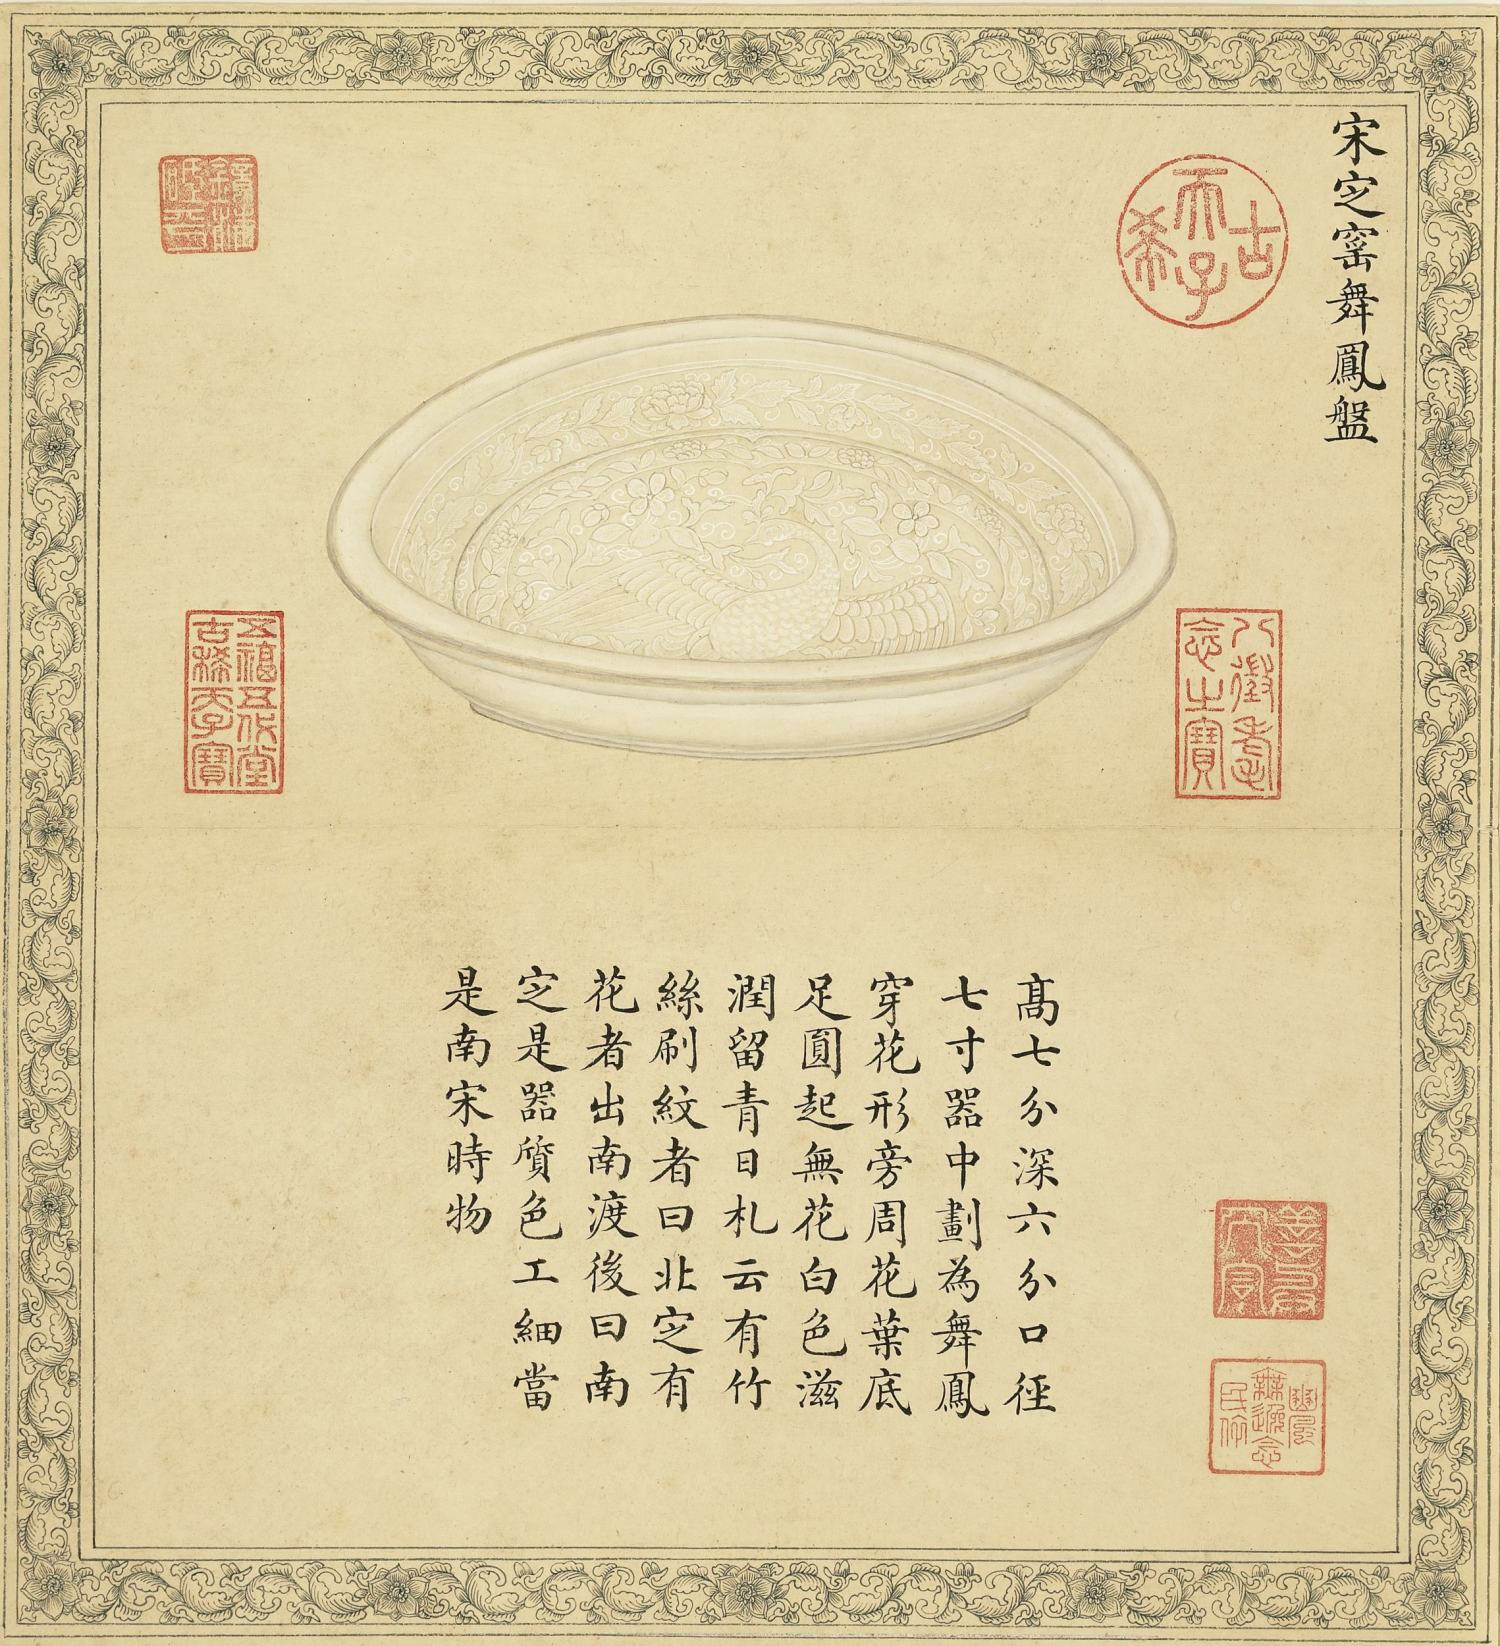 宋定窰舞鳳盤
古希天子
八徵耄念之寶
五福五代堂古稀天子寶
高七分深六分口徑
七寸器中劃為舞鳳
穿花形旁周花葉底
足圓起無花白色滋
潤留青日札云有竹
絲刷紋者曰北定有
花者出南渡後曰南
定是器質色工細當
是南宋時物